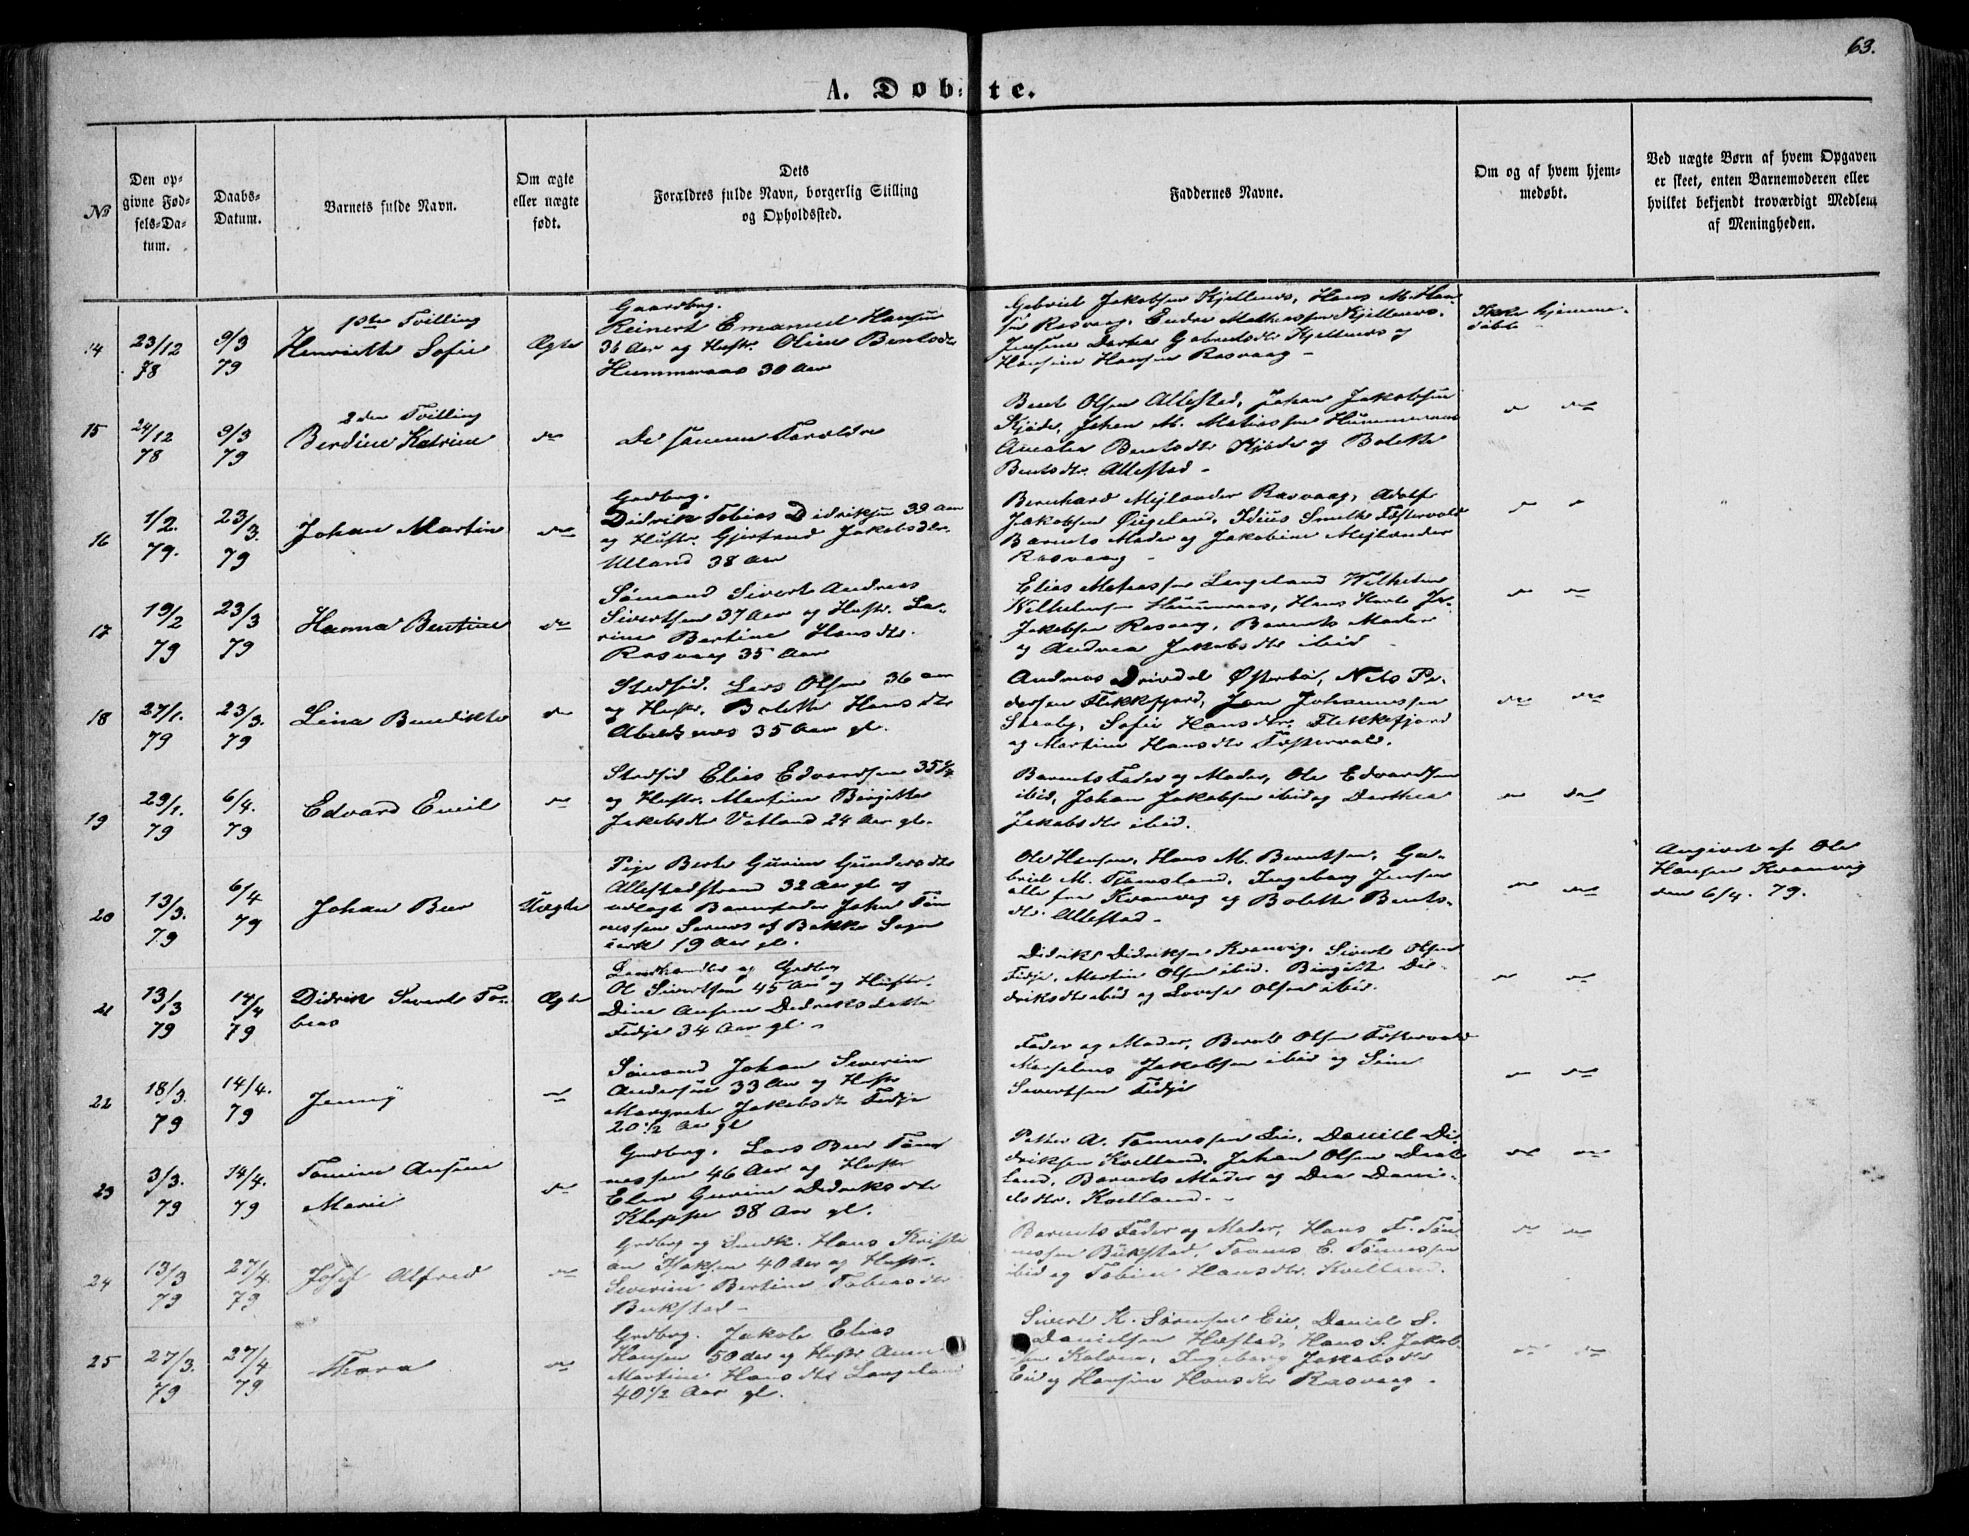 63.
A. Døbte.
No
Den opgivne Fødsels-Datum.
Daabs-Datum.
Barnets fulde Navn.
Om ægte eller uægte født.
Dets Forældres fulde Navn, borgerlig Stilling og Opholdssted.
Faddernes Navne.
Om og af hvem hjemmedøbt.
Ved uægte Børn af hvem Opgaven er skeet, enten Barnemoderen eller hvilket bekjendt troværdigt Medlem af Meningheden.
14
23/12 78
9/3 79
1ste Tvilling
Henriette Sofie
Ægte
Gaardbrg.
Reinert Emanuel Hansen
36 Aar og Hustr. Oline Bentsdtr
Hummeraas 30 Aar
Gabriel Jakobsen Kjellnes, Hans M. Han-
sen Rasvaag, Endre Mathiassen Kjellnes,
Jensine Dorthea Gabrielsdtr Kjellnes og
Hansine Hansen Rasvaag –
Ikke hjemme-
døbt
15
24/12 78
9/3 79
2den Tvilling
Berdine Katrine
do
De samme Forældre
Bent Olsen Allestad, Johan Jakobsen
Kjøde, Johan M. Matiassen Hummeraas
Amalia Bentsdtr Kjøde og Bolette
Bentsdtr. Allestad –
16
1/2. 79.
23/3. 79
Johan Martin
do
Grdbrg.
Didrik Tobias Didriksen 39 Aar
og Hustr. Gjertrud Jakobsdtr.
Ulland 38 Aar
Bernhard Mejlænder Rasvaag, Adolf
Jakobsen Øigeland, Smith Fostervold
Barnets Moder og Jakobine Mejlænder
Rasvaag –
17
19/2 79
23/3 79
Hanna Bentine
do
Sømand Sivert Andreas
Sivertsen 37 Aar og Hustr. La-
rine Bertine Hansdtr.
Rasvaag 35 Aar
Elias Matiassen Lengeland Wilhelm
Wilhelmsen Hummeraas, Hans Karl
Jakobsen Rasvaag, Barnets Moder
og Andrea Jakobsdtr ibid
18
27/1. 79
23/3. 79
Lina Benedikte
do
Stedsid. Lars Olsen 36 Aar
og Hustr. Bolette Hansdtr
Abelsnes 35 Aar gl.
Andreas Drivdal Østerbø, Nils Pe-
dersen Flekkefjord, Jan Johannessen
Sofie Hansdtr. Flekkefjord
og Martine Hansdtr Fostervold.
19
29/1. 79
6/4. 79
Edvard Emil
do
Stedsid Elias Edvardsen 35
og Hustr. Martine Birgitte
Jakobsdtr Vatland 24 Aar gl.
Barnets Fader og Moder, Ole Edvardsen
ibid, Johan Jakobsen ibid og Dorthea
Jakobsdtr ibid.
20
13/3. 79
6/4 79
Johan Beer
Uægte
Pige Berte Gurine Gundersdtr
Allestadstrand 32 Aar gl og
udlagt Barnefader Johan Tøn-
nessen af Bakke Sogn
19 Aar gl.
Ole Hansen, Hans M. Berntsen, Ga-
briel M. Tjomsland, Ingeborg Jensen
alle fra Kvanvig og Bolette Bents-
dtr. Allestad –
Angivet af Ole
Hansen Kvanvig
den 6/4. 79.
21
13/3 79
14/4 79
Didrik Sivert To-
bias
Ægte
Landhandler og Grdbrg
Ol Sivertsen 45 Aar og Hustr.
Dine Ansine Didriksdatter
Fidje 34 Aar gl –
Didrik Didriksen Kvanvig, Sivert Olsen
Fidje, Martin Olsen ibid. Birgitte Di-
driksdtr ibid og Lovise Olsen ibid.
22
18/3. 79
14/4. 79
Jenny
do
Sømand Johan Severin
Andersen 33 Aar og Hustr
Margrete Jakobsdtr Fidje
20 1/2 Aar gl
Fader og Moder, Bernt Olsen Fostervold
Jakobsen ibid og Sine
Sivertsen Fidje
23
3/3. 79
14/4. 79
Tomine Ansine
Marie
do
Grdbrg. Lars Beer Tøn-
nessen 46 Aar og Hustr
Elen Gurine Didriksdtr
Kleppe 38 Aar gl.
Petter A. Tønnessen Eie, Daniel Di-
driksen Kvelland, Johan Olsen
Barnets Moder og Dani-
elsdtr. Kvelland. –
24
13/3 79
27/4. 79
Josef Alfred
do
Grdbrg og Smdk. Hans Kristi-
an Isaksen 40 Aar og Hustr.
Severine Bertine Tobiasdtr
Bukstad –
Barnets Fader og Moder, Hans F. Tøn-
nessen Bukstad, Tønnes E. Tønnessen
ibid og Tobine Hansdtr. Kvelland.
25
27/3. 79
27/4 79
Thora
do
Grdbrg. Jakob Elias
Hansen 50 Aar og Hustr Anne
Martine Hansdtr Langeland
40 1/2 Aar gl.
Sivert K. Sørensen Eie, Daniel S.
Danielsen Hæstad, Hans S. Jakob-
sen Ingeborg Jakobsdtr
Eie og Hansine Hansdtr Rasvaag –